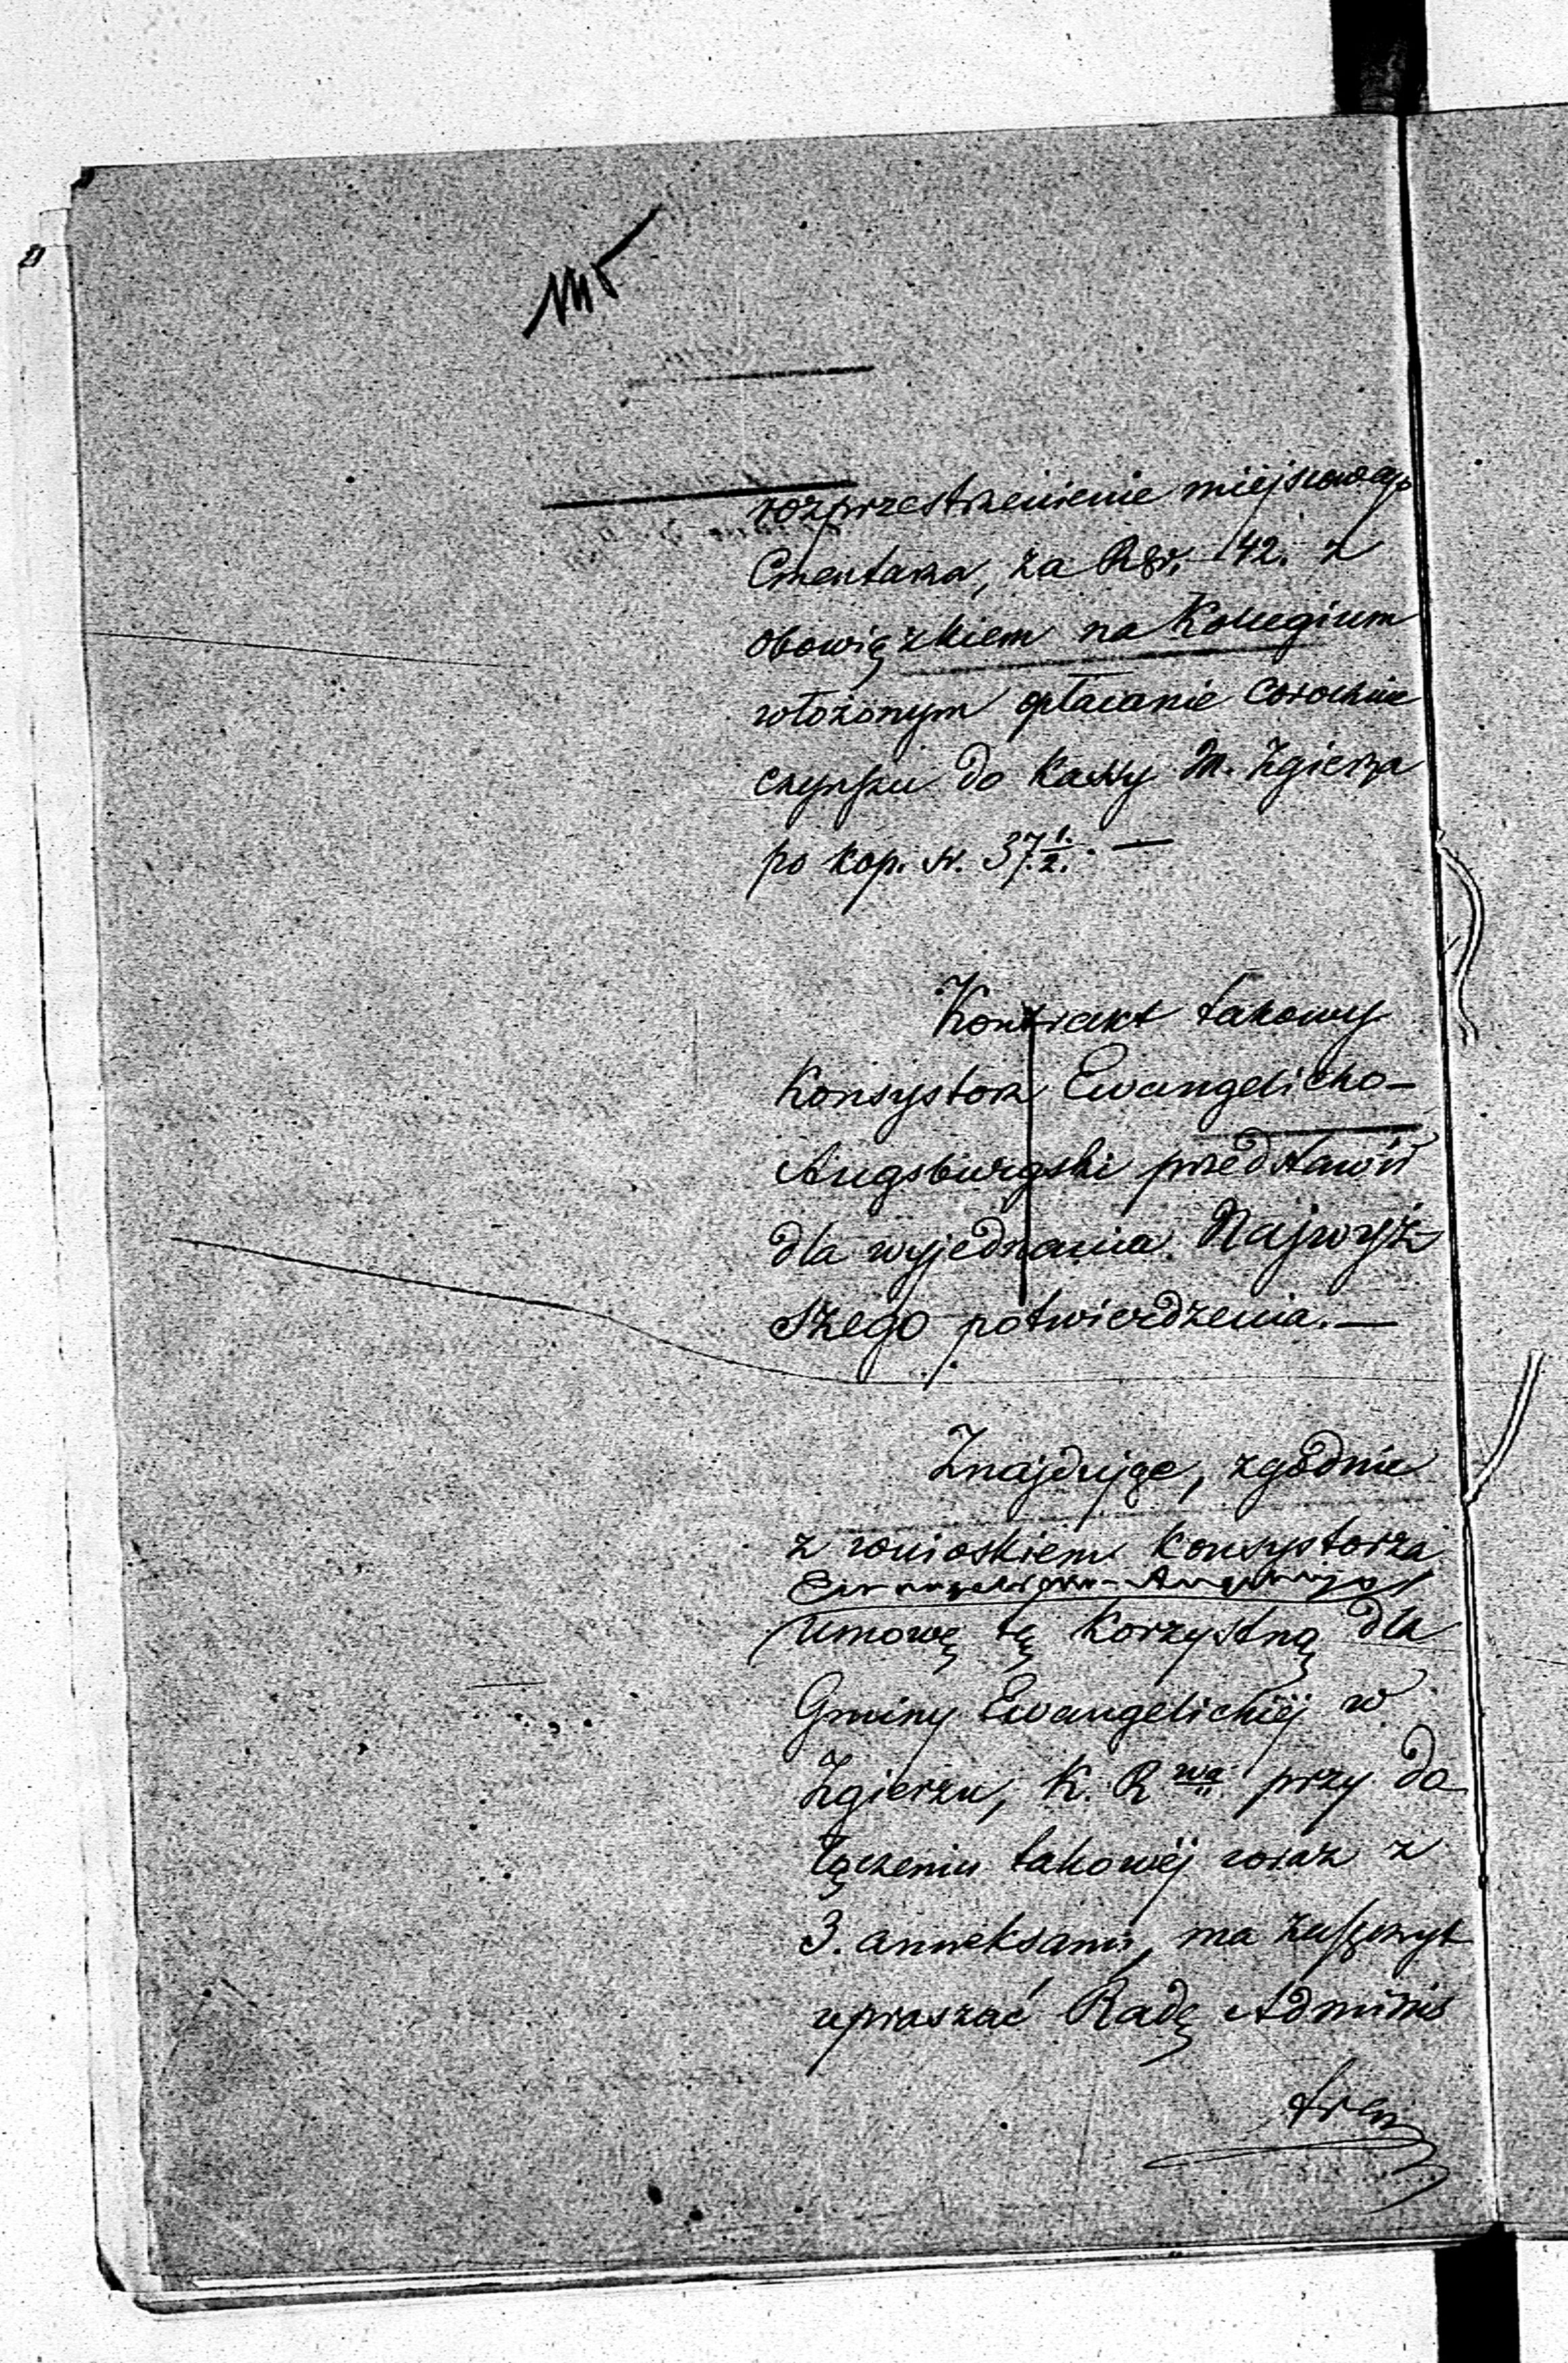 rozprzestrzenienie miejscowego
Cmentarza, za Rsr. 142. z
obowiązkiem na Kollegium
włożonym opłacanie corocznie
czynszu do Kassy M. Zgierza
po kop. sr. 37 1/2. —
Kontrakt takowy
Konsystorz Ewangelicko-
Augsburgski przedstawił
dla wyjednania Najwyż-
szego potwierdzenia. —
Znajdując, zgodnie
z wnioskiem Konsystorza
umowę tę korzystną dla
Gminy Ewangelickiéj w
Zgierzu, K. R wa przy do
łączeniu takowéj wraz z
3. anneksami, ma zaszczyt
upraszać Radę Adminis